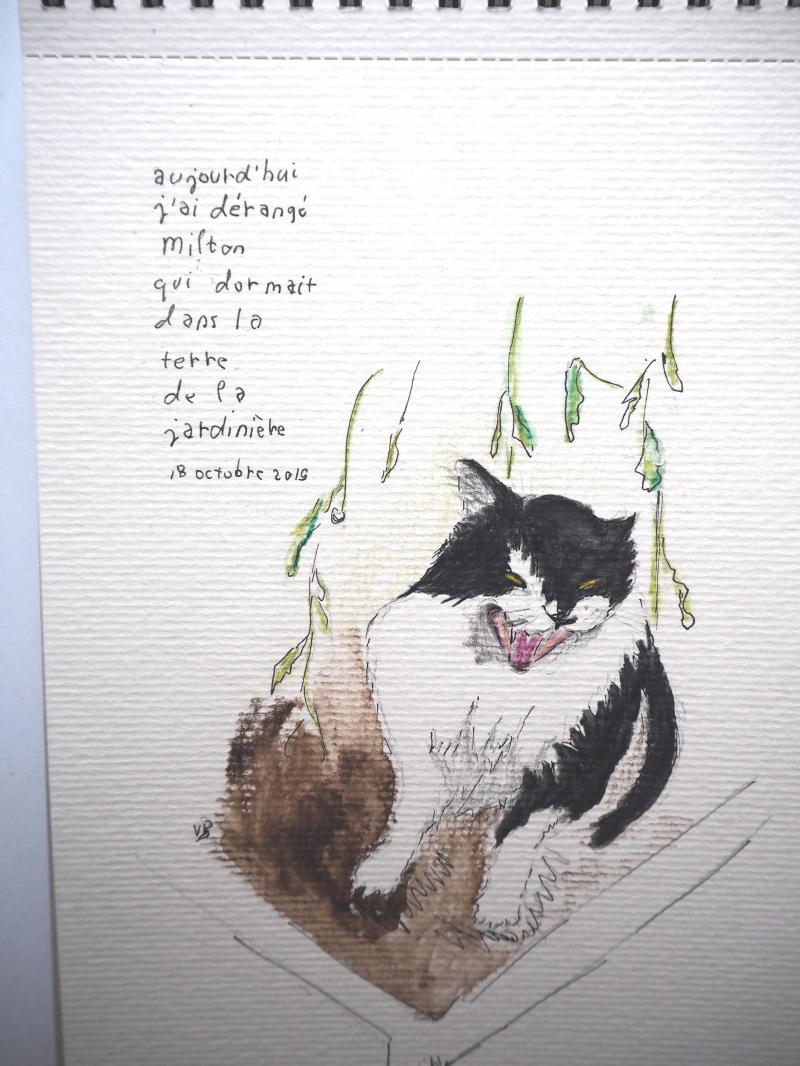 aujourd'hui
j'ai dérangé
milton
qui dormait
dans la
terre
de la
jardinière
18 octobre 2015
VB